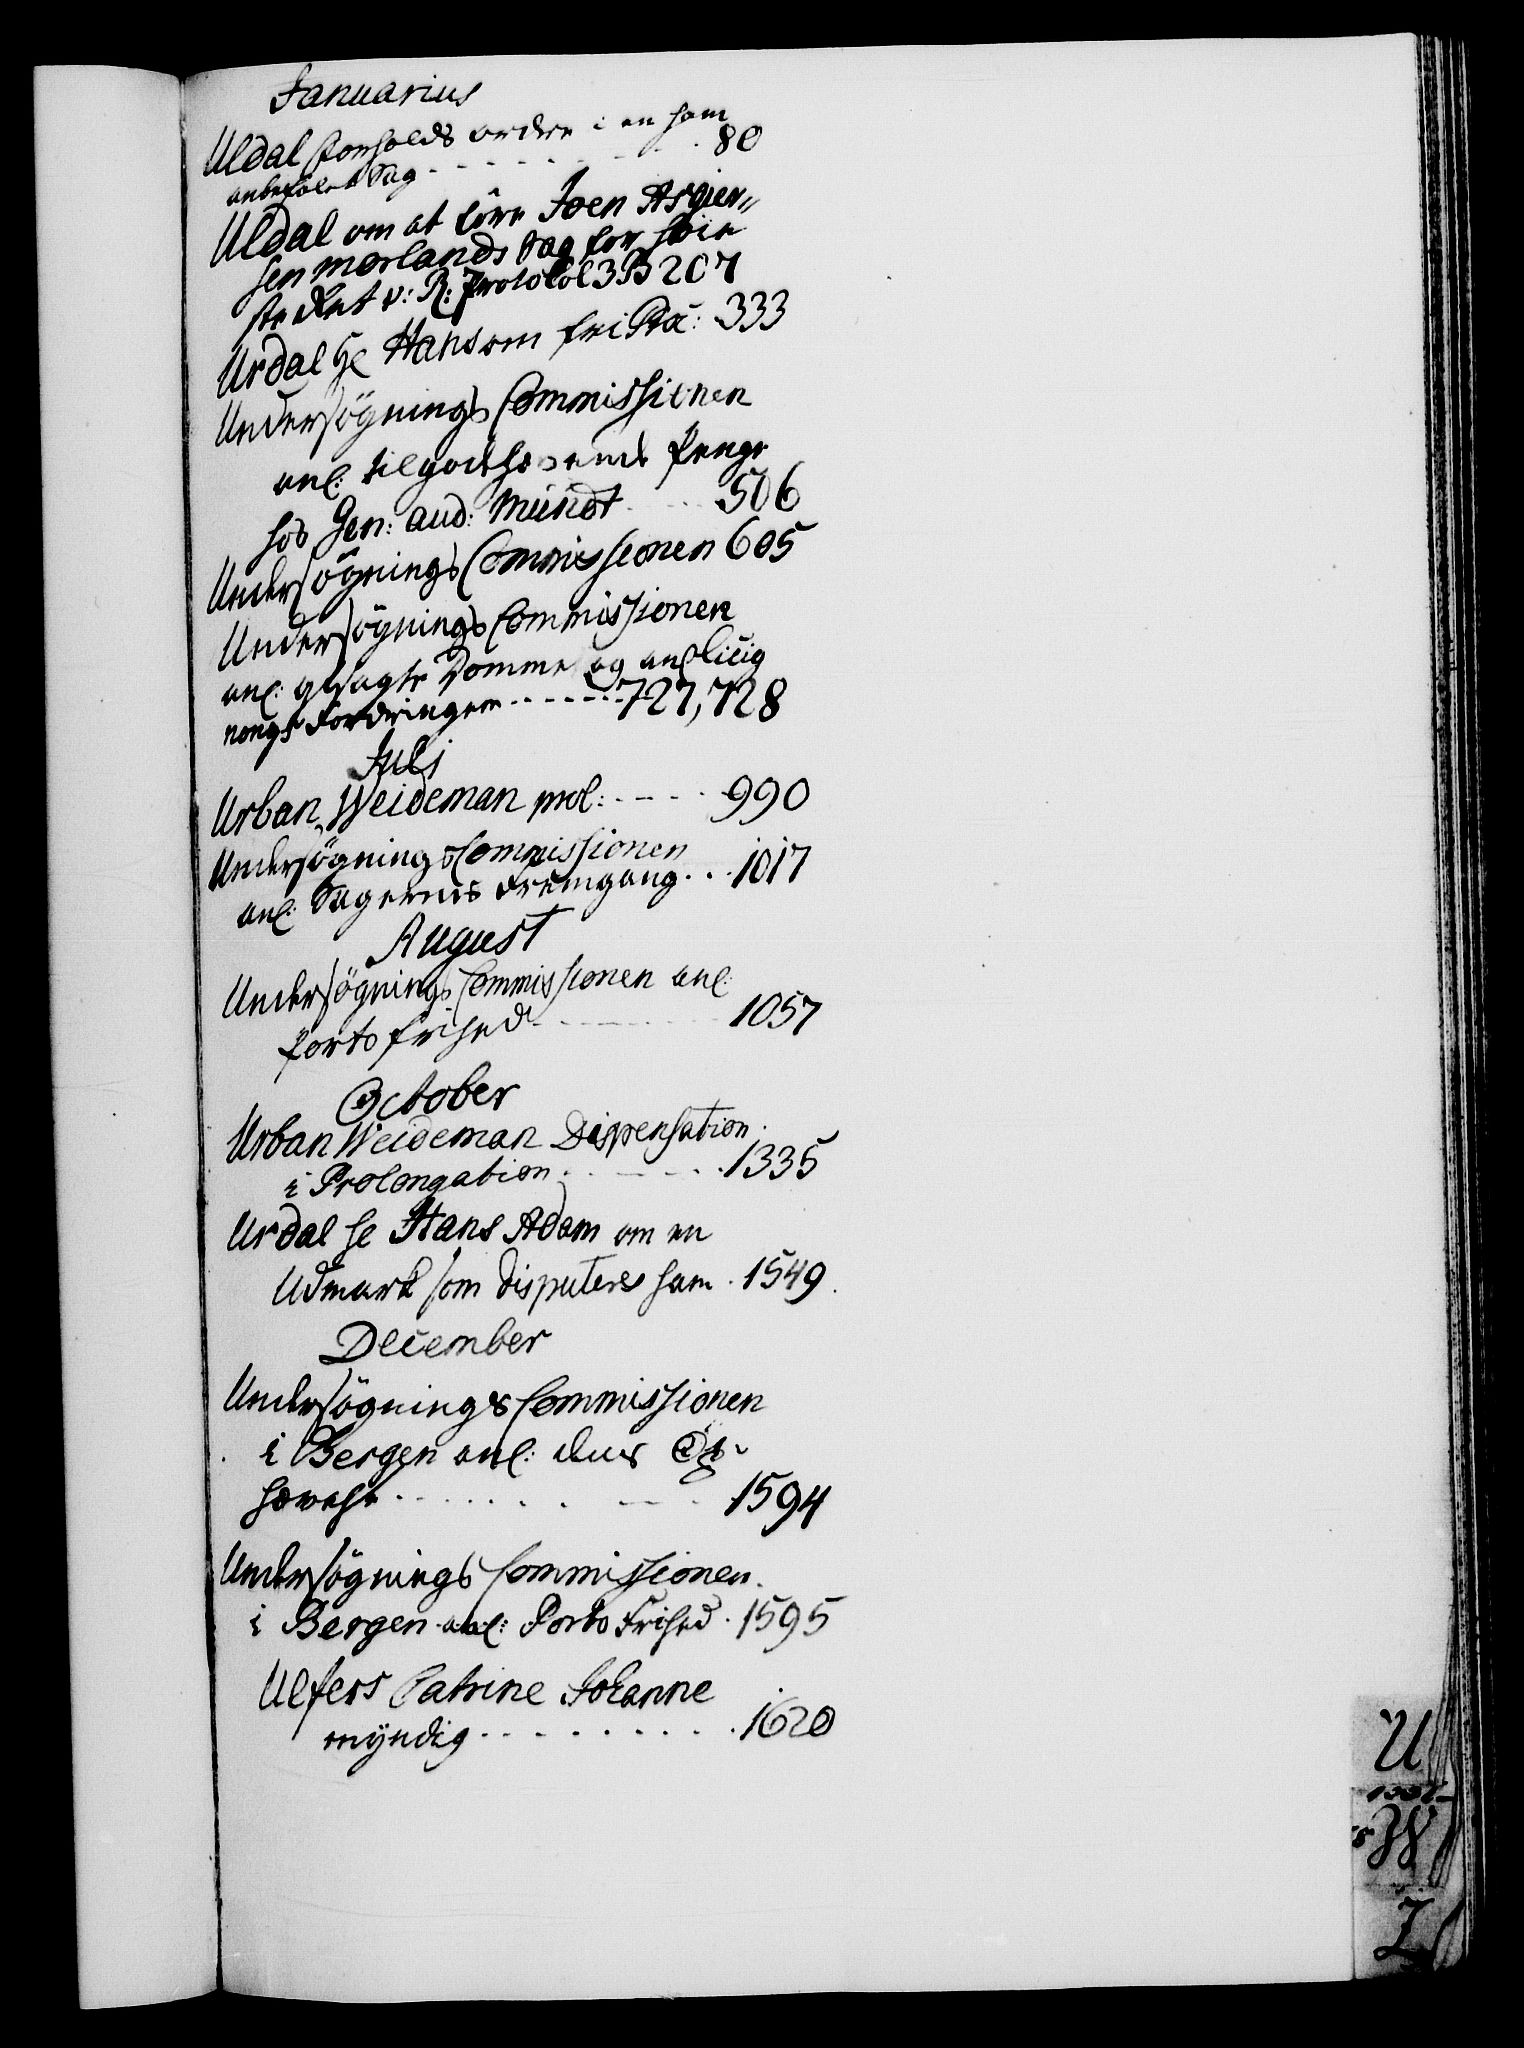 Januarius
Uldal forholds ordre i en ham
anbefalet Sag - - - - - 80
Uldal om at føre Joen Asgier„
sen Morlands sag for høie
ste Ret v: R: Protokol 3 B 207
Urdal Hans om fri Pro: 333
Undersögnings Commissionen
anl: tilgodehavende Penge
hos Gen: aud: Mündt ... 506
Undersögnings Commissionen 605
Undersögnings Commissionen
anl: Domme og anl
Fordringer ....... 727, 728
Juli
Urban Weideman prol: - - - - 990
Undersögnings Commissionen
anl: Sagernes Fremgang . . . 1017
August
Undersögnings Commissionen anl:
Porto frihed - - - - - 1057
October
Urban Weideman Dispensation
i Prolongation - - - - 1335
Urdal Hans Adam om en
Udmark som disputeres ham . 1549.
December
Undersögnings Commissionen
i Bergen anl: dens
- - - - - 1594
Undersögnings Commissionen.
i Bergen anl: Porto Frihed . 1595
Ulfers Catrine Johanne
myndig - - - - - - 1620
U
W
Z